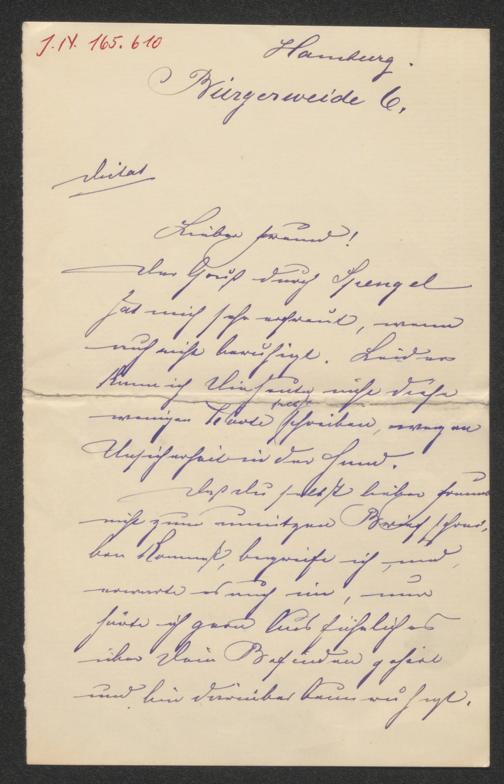 J.N. 165.610
Hamburg.
Bürgerweide 6.
Dictat
Lieber Freund!
Der Gruß durch Spengel
hat mich sehr erfreut, wenn
auch nicht beruhigt. Leider
kann ich Dir heute nicht diese
wenigen Worte selbst schreiben, wegen
Unsicherheit in der Hand.
Daß du selbst lieber Freund
nicht zum unnützen Brief schrei-
ben kommst, begreife ich, und
erwarte es auch nie, nur
hätte ich gern Ausführliches
über Dein Befinden gehört
und bin darüber beunruhigt.